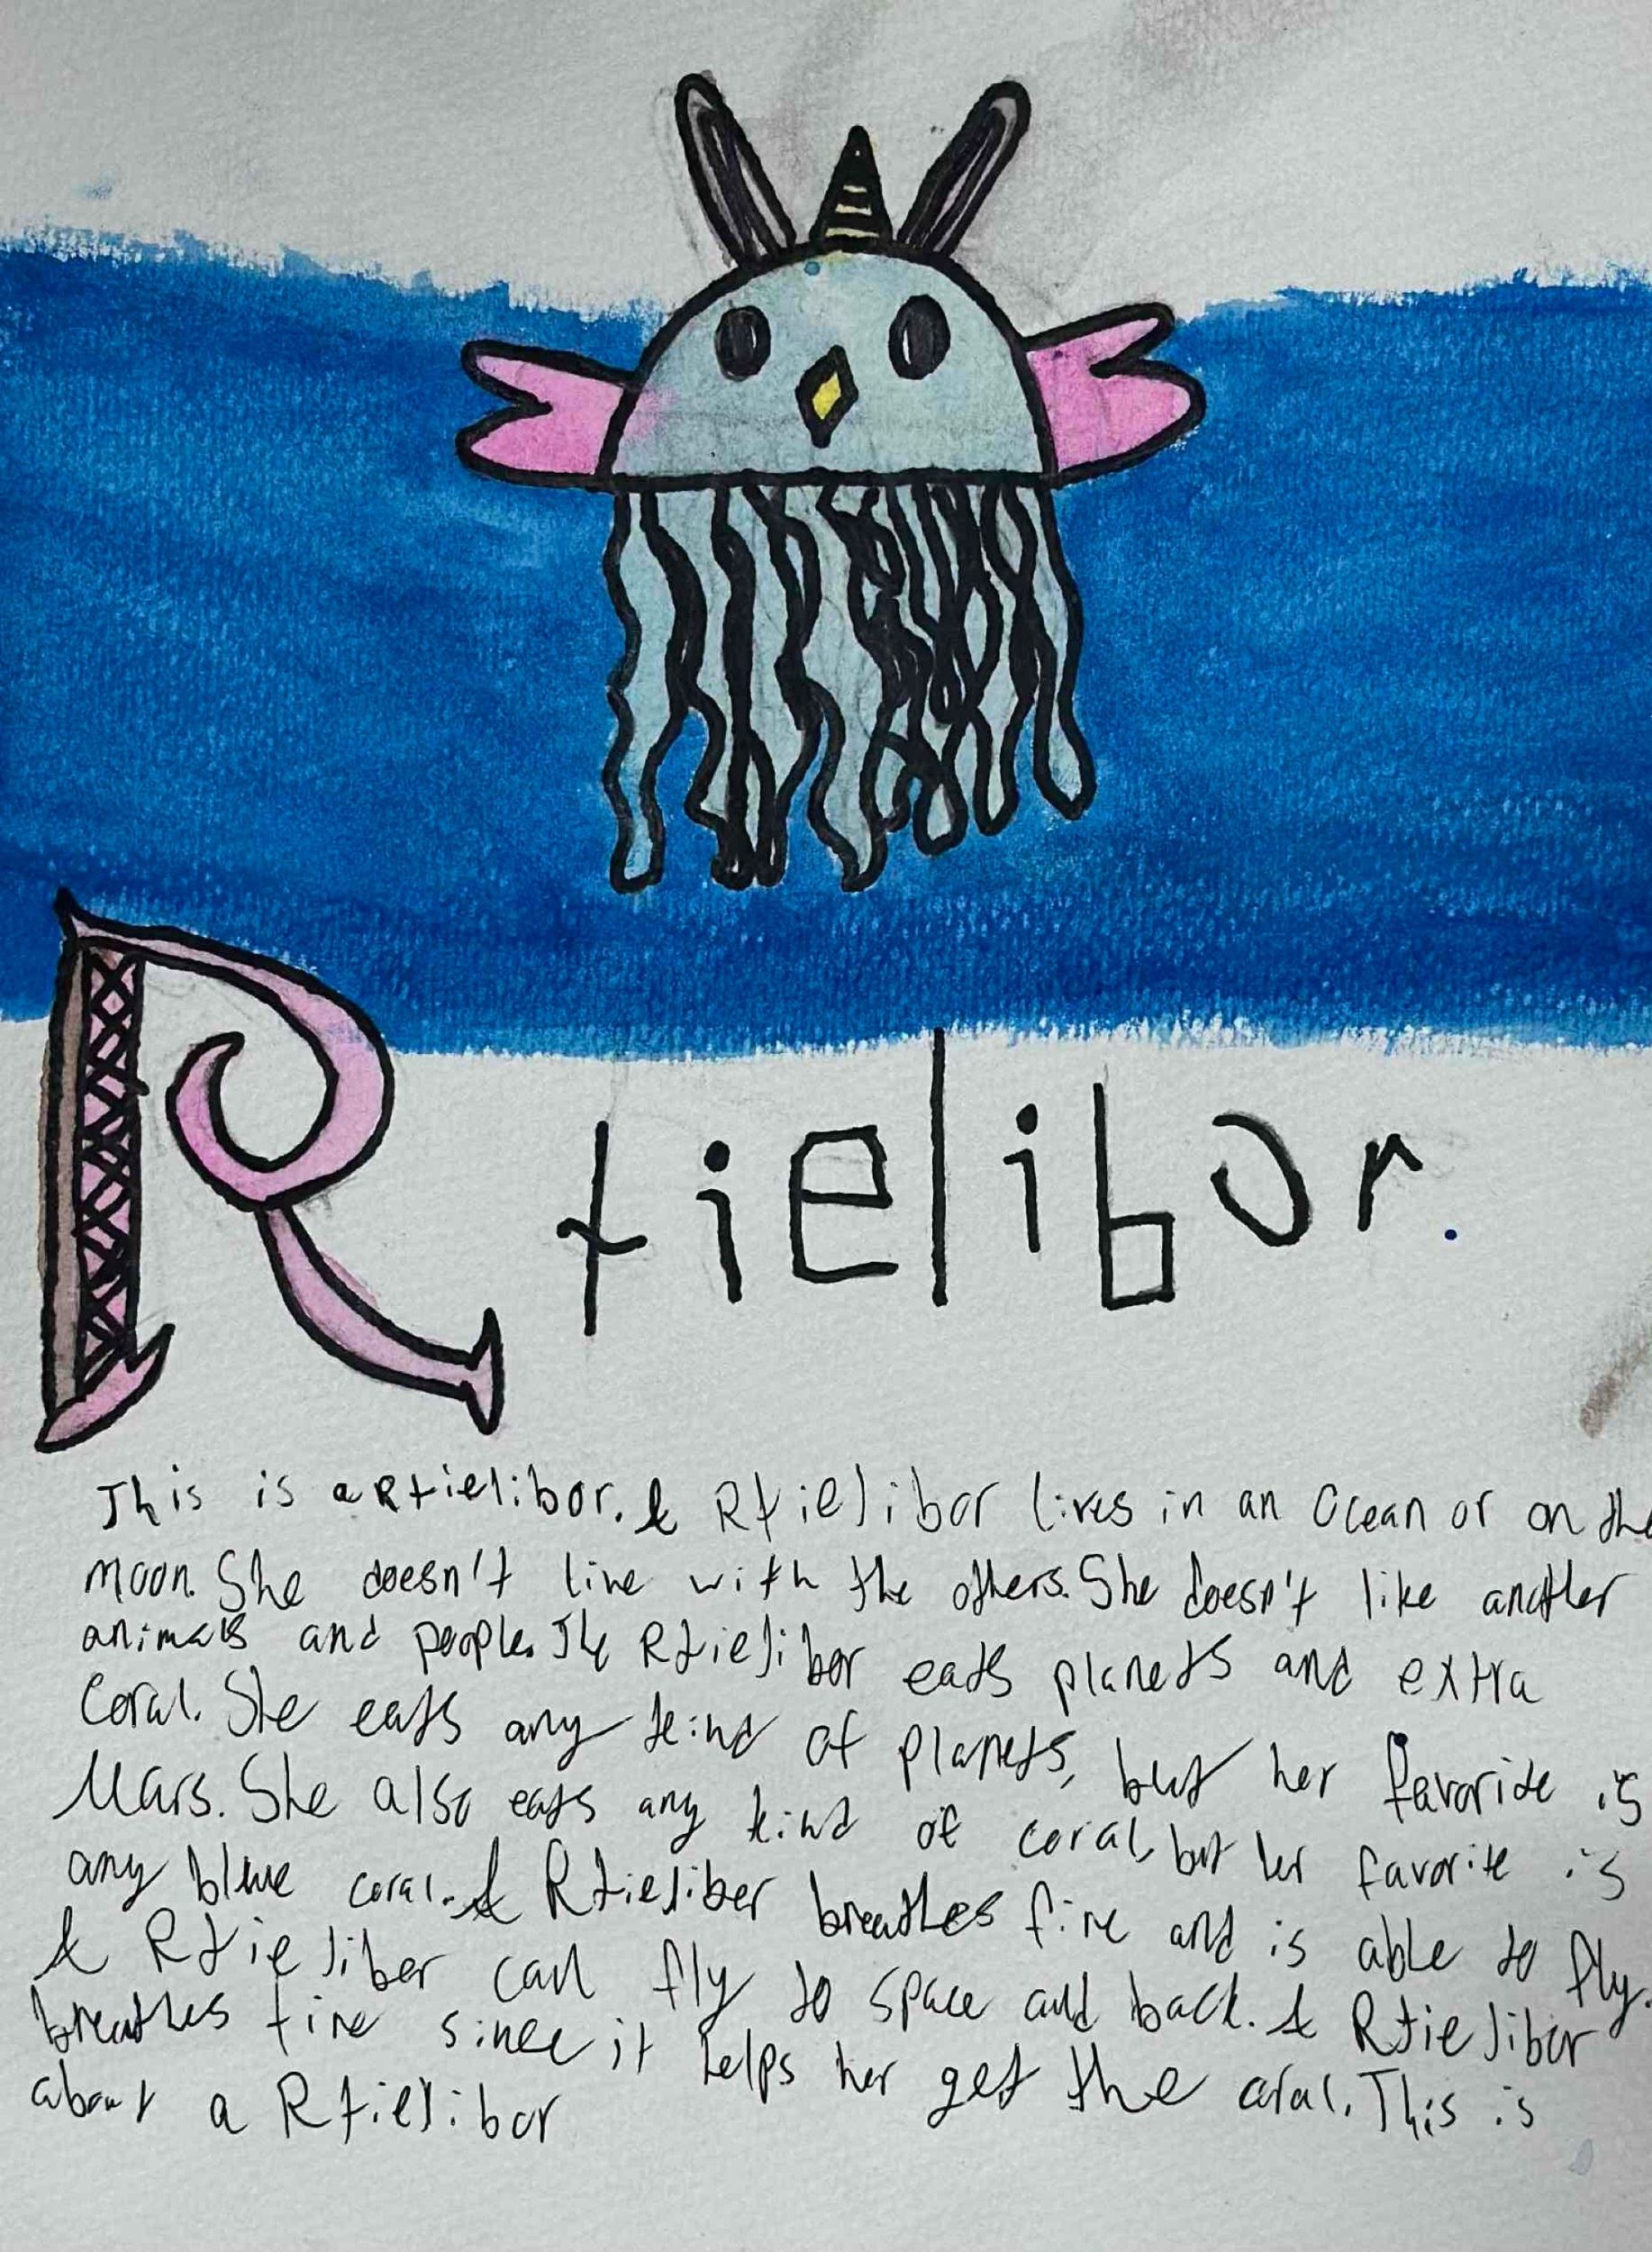 Rtielibor.
This is a Rtielibor. A Rtielibor lives in an Ocean or on the
moon. She doesn't live with the others. She doesn't like another
animals and people. The Rtielibor eats planets and extra
Coral. She eats any kind of planets, but her favorite is
Mars. She also eats any kind of coral, but her favorite is
any blue coral. A Rtieliber breathes fire and is able to fly.
A Rtieliber can fly to space and back. A Rtielibor
breathes fire since it helps her get the coral. This is
about a Rtielibor